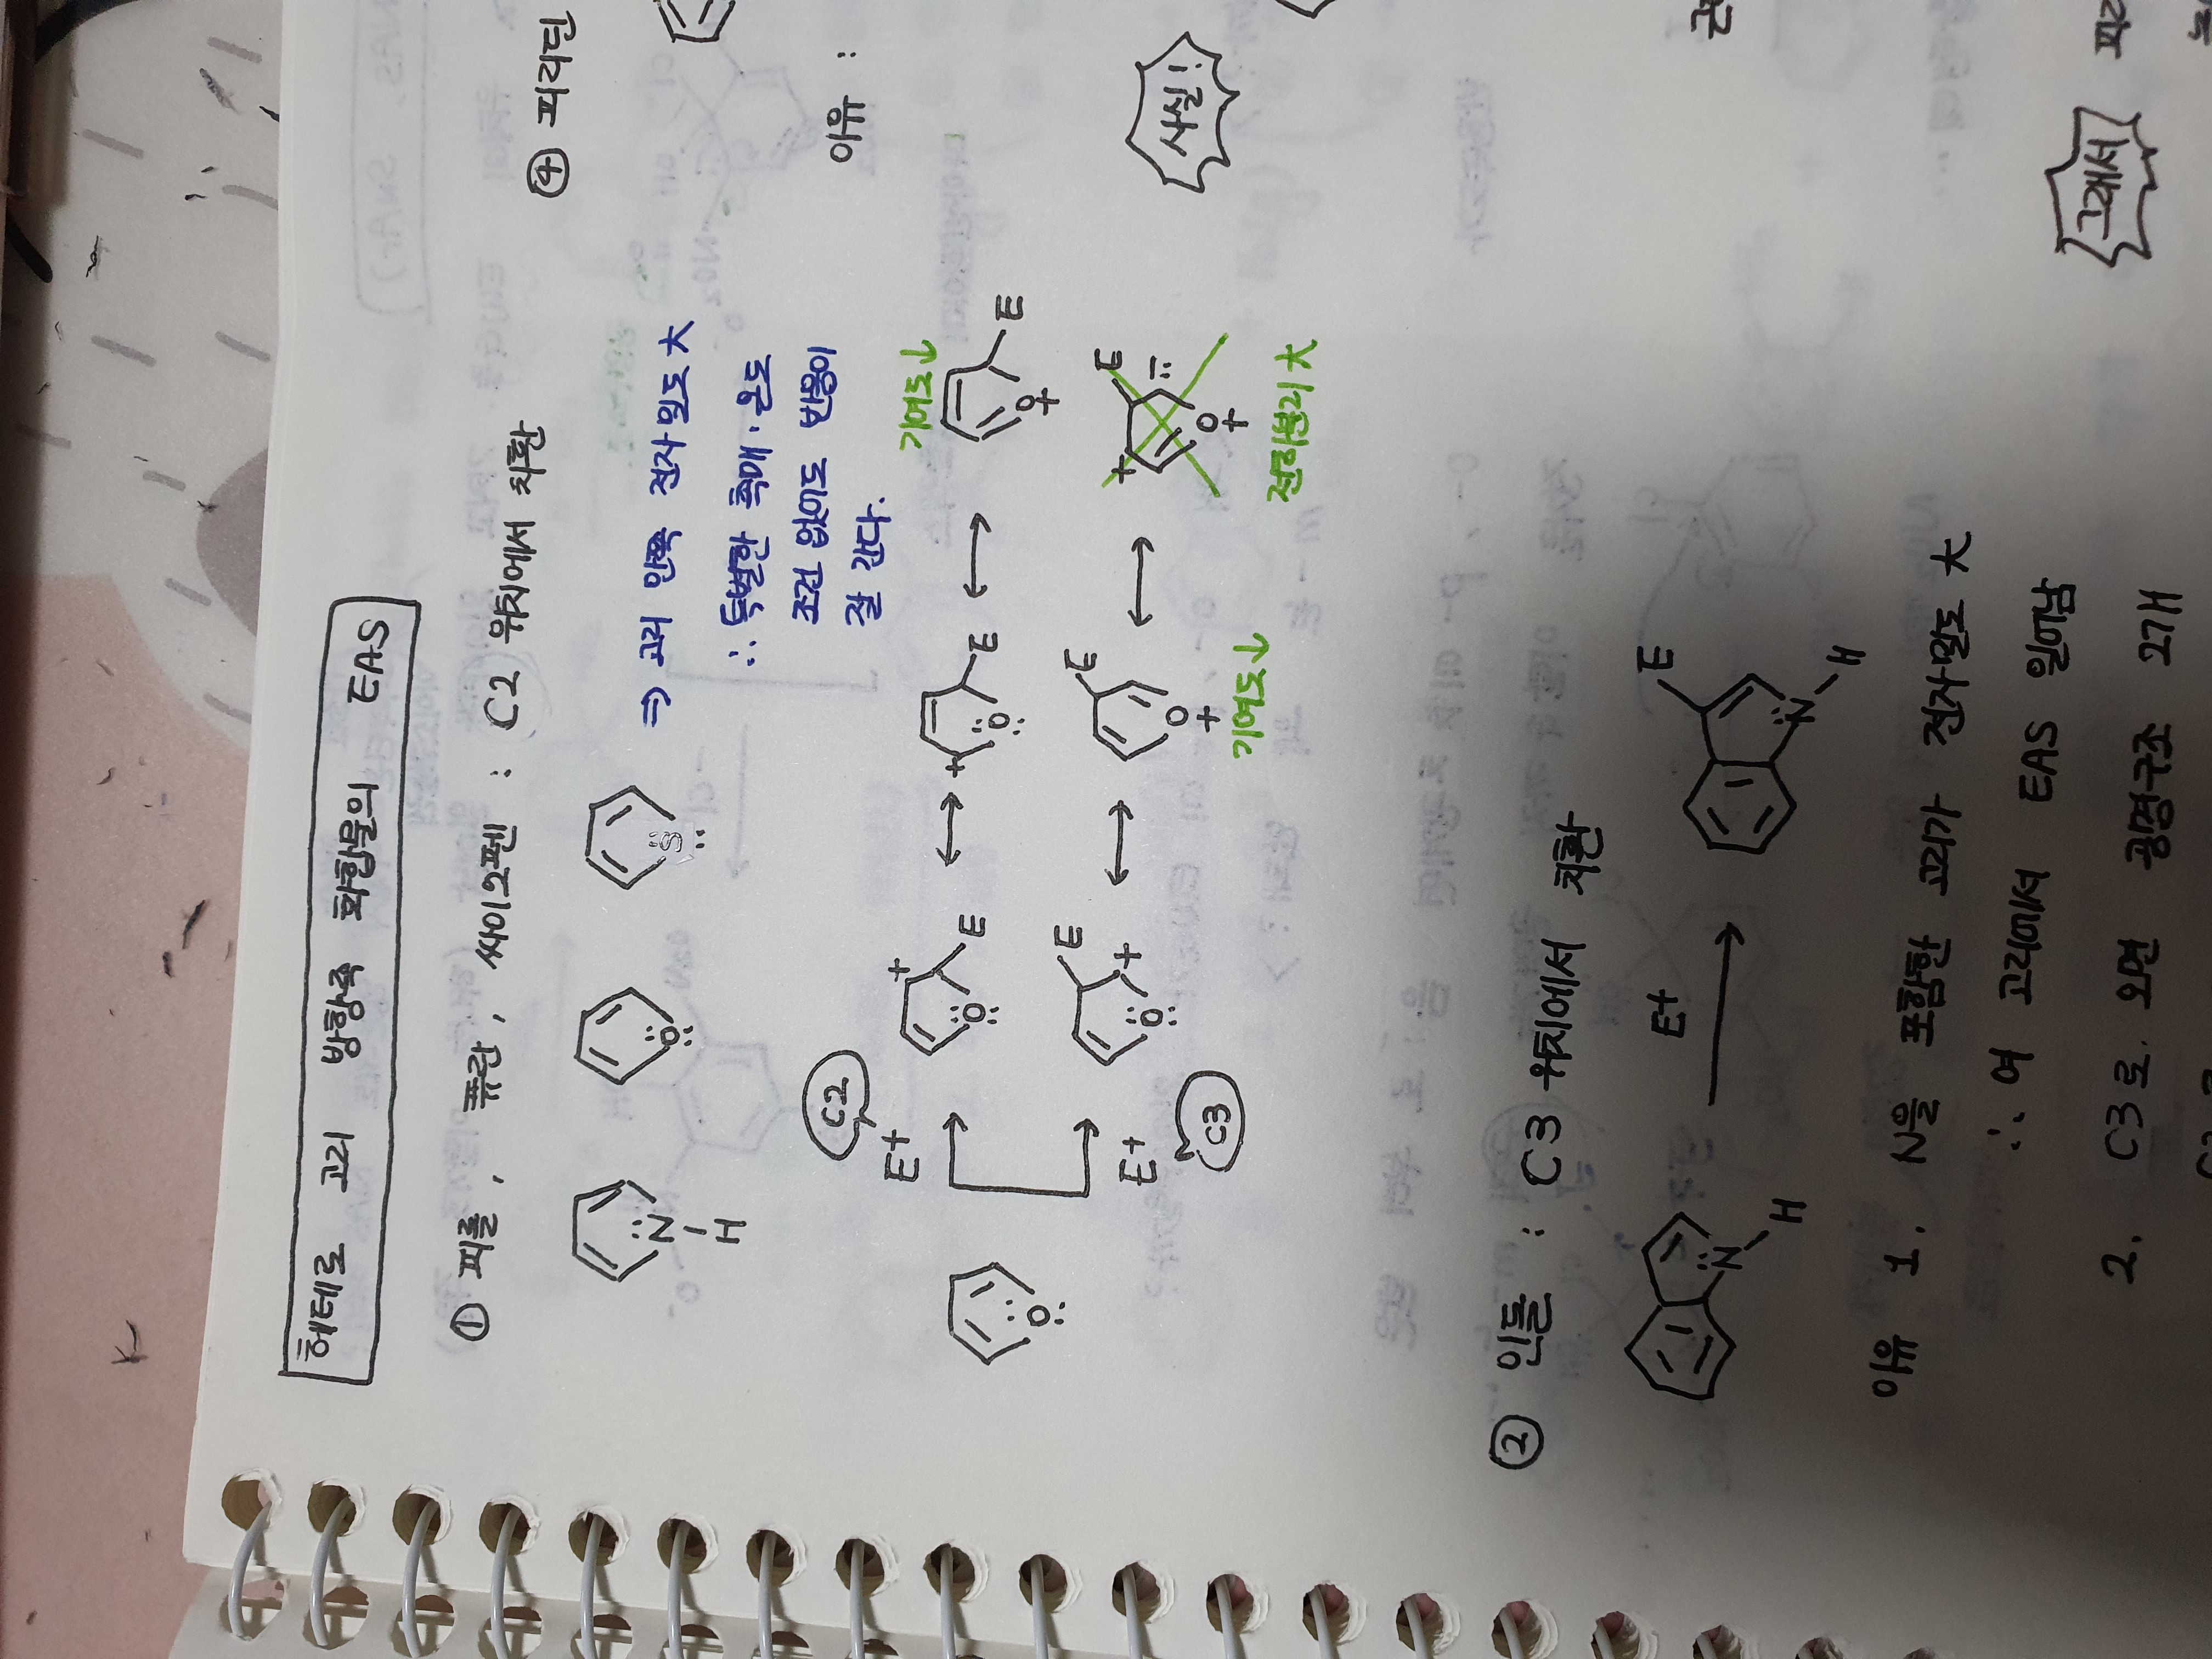 헤테로 고리 방향족 화합물의 EAS
① 피롤, 퓨란, 싸이오펜 : C2 위치에서 치환
N
H
O
S
⇒ 고리 안쪽 전자밀도 大
∴ 특별한 촉매·온도
조건 없이도 반응이
잘 간다.
C2
E+
+
E
O
↔
+
E
O
↔
기여도↓
E
O
+
O
E+
C3
E
+
O
↔
E
O
+
기여도↓
↔
E
+
O
+
전하분리 大
② 인돌 : C3 위치에서 치환
N
H
E+
E
N
H
이유 1. N을 포함한 고리가 전자밀도 大
∴ 여 고리에서 EAS 일어남
2. C3로 오면 공명구조 2개
④ 피리딘
이유 :
사실!
그래서